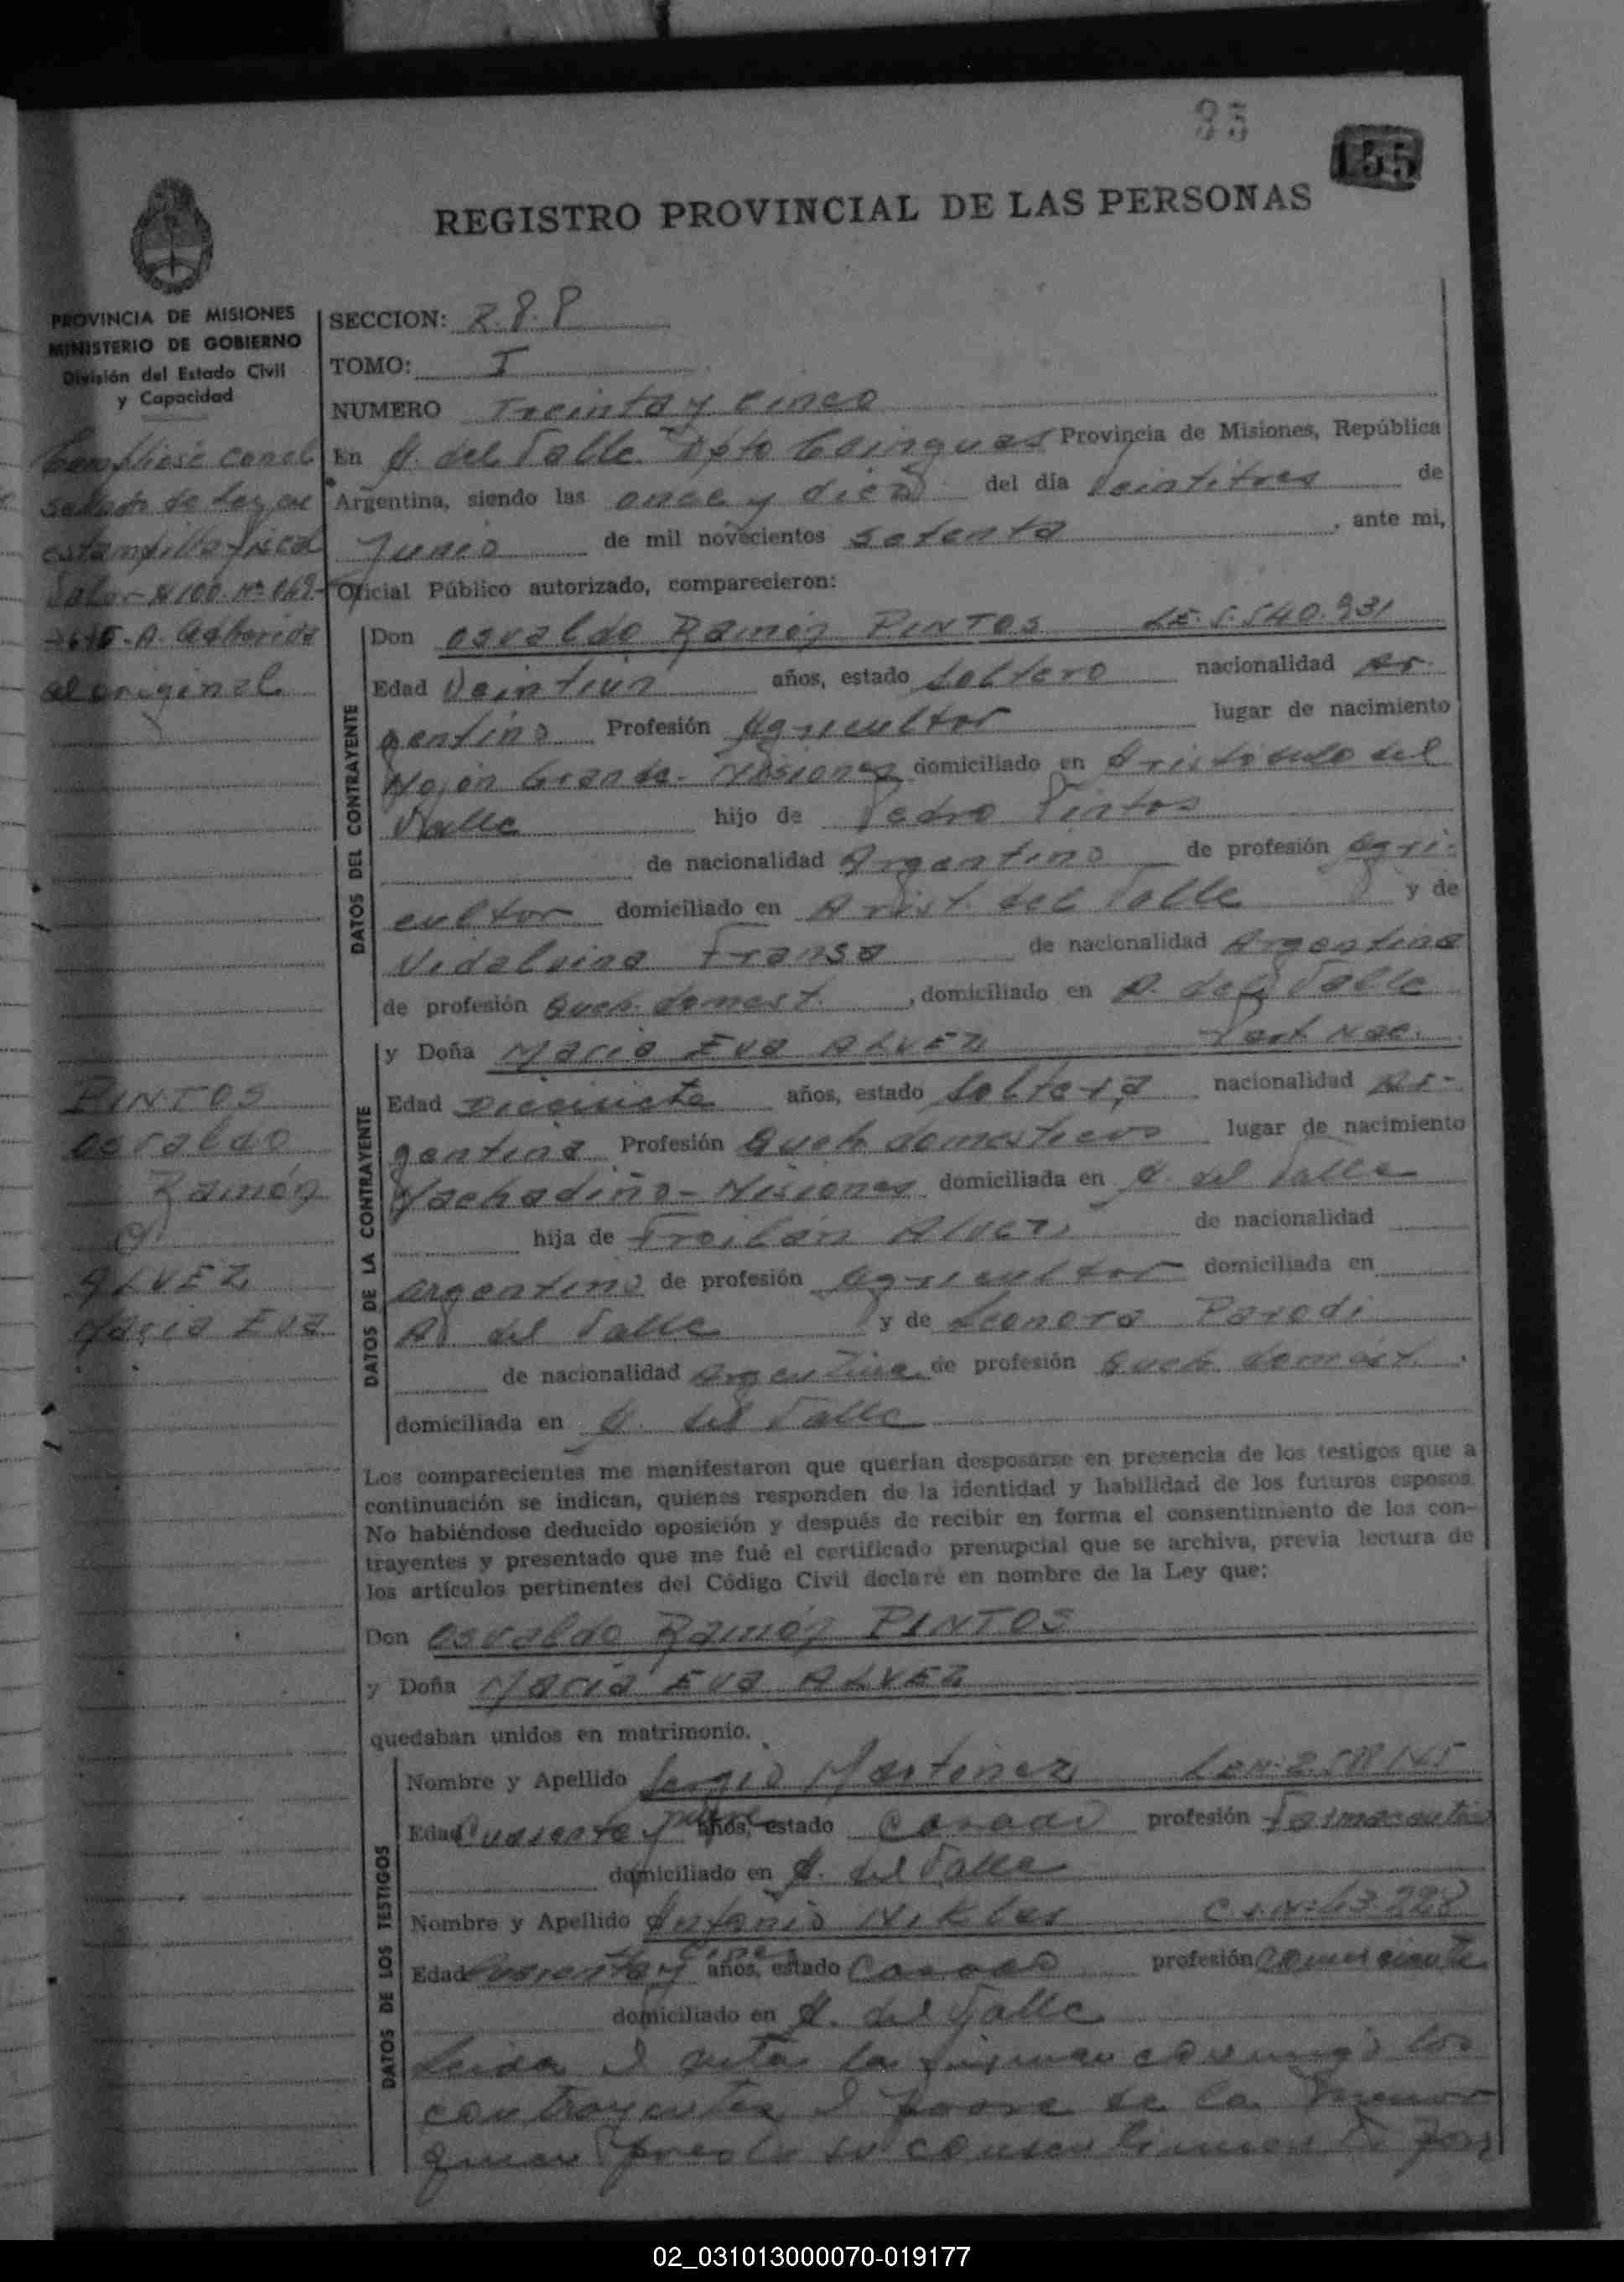 35
155
REGISTRO PROVINCIAL DE LAS PERSONAS
PROVINCIA DE MISIONES
MINISTERIO DE GOBIERNO
División del Estado Civil
y Capacidad
SECCION:
TOMO: I
NUMERO Treinta y cinco
En A. del Valle Dpto Cainguas Provincia de Misiones, República
Argentina, siendo las once y diez del día veintitres de
Junio de mil novecientos setenta, ante mi,
Oficial Público autorizado, comparecieron:
original
PINTOS
osvaldo
Ramón
ALVEZ
María Eva
DATOS DEL CONTRAYENTE
Don osvaldo Ramón PINTOS
Edad Veintiun años, estado soltero nacionalidad Ar-
gentino Profesión Agricultor lugar de nacimiento
Mojón Grande - Misiones domiciliado en Aristóbulo del
Valle hijo de Pedro Pintos
de nacionalidad Argentino de profesión agri-
cultor domiciliado en Arist. del Valle y de
de nacionalidad Argentina
de profesión Queh. domest., domiciliado en A. del Valle
DATOS DE LA CONTRAYENTE
y Doña María Eva ALVEZ Part. Nac.
Edad años, estado soltera nacionalidad Ar-
gentina Profesión Queh. domesticos lugar de nacimiento
Misiones domiciliada en A. del Valle
hija de Froilán Alvez de nacionalidad
argentino de profesión agricultor domiciliada en
A. del Valle y de Leonora Parodi
de nacionalidad Argentina de profesión Queh domést.
domiciliada en A. del Valle
Los comparecientes me manifestaron que querían desposarse en presencia de los testigos que a
continuación se indican, quienes responden de la identidad y habilidad de los futuros esposos.
No habiéndose deducido oposición y después de recibir en forma el consentimiento de los con-
trayentes y presentado que me fué el certificado prenupcial que se archiva, previa lectura de
los artículos pertinentes del Código Civil declaré en nombre de la Ley que:
Don osvaldo Ramón PINTOS
y Doña María Eva ALVEZ
quedaban unidos en matrimonio.
DATOS DE LOS TESTIGOS
Nombre y Apellido Sergio Martinez
Edad Cuarenta y años, estado Casado profesión
domiciliado en A. del Valle
Nombre y Apellido Antonio Niklas
Edad Cuarenta y años, estado Casado profesión Comerciante
domiciliado en A. del Valle
Leida el acta la firman conmigo los
contrayentes, el padre de la menor
quien presta su consentimiento
02_031013000070-019177